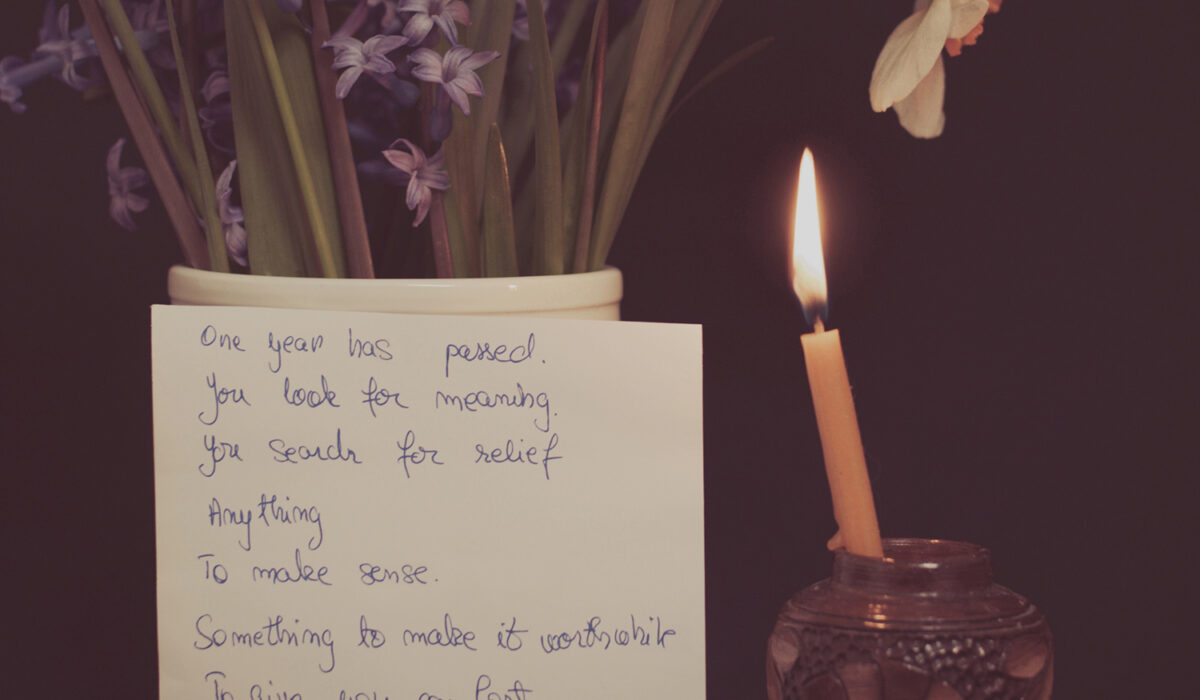 One year has passed.
You look for meaning.
You search for relief
Anything
To make sense.
Something to make it worthwhile
To give you